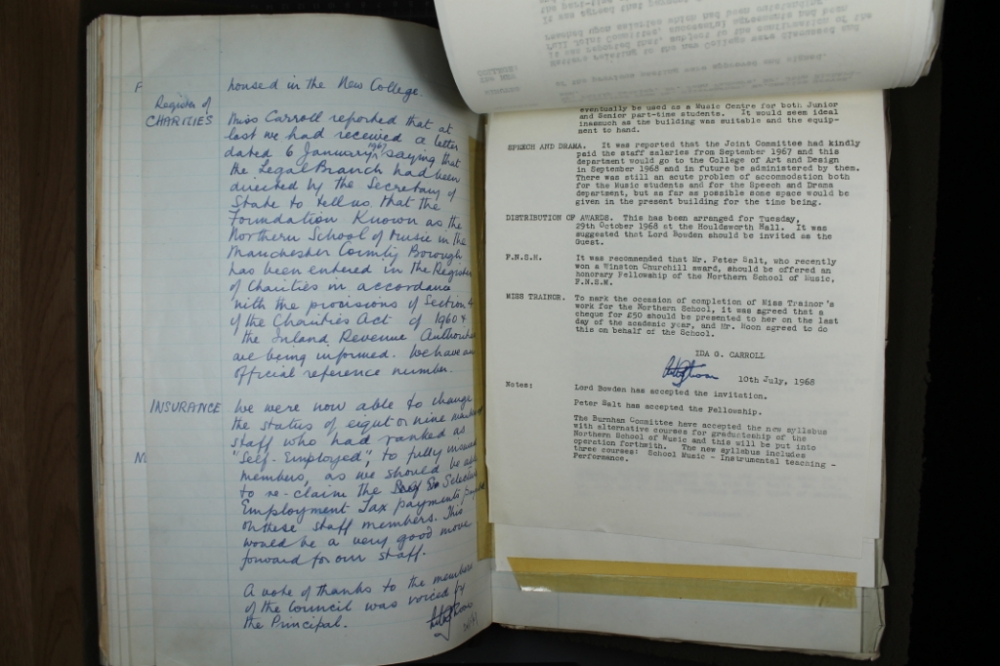 F
housed in the New College.
Register of
CHARITIES
Miss Carroll reported that at
last we had received a letter
dated 6 January 1967 saying that
the Legal Branch had been
directed by the Secretary of
State to tell us that the
Foundation Known as the
Northern School of Music in the
Manchester County Borough
has been entered in the Register
of Charities in accordance
with the provisions of Section 4
of the Charities Act of 1960 &
the Inland Revenue Authorities
are being informed. We have an
official reference number.
INSURANCE
We were now able to change
the status of eight or nine members of
staff who had ranked as
"Self-Employed", to fully insured
members, as we should be able
to re-claim the Selective
Employment Tax payments
on these staff members. This
would be a very good move
forward for our staff.
A vote of thanks to the members
of the Council was voiced by
the Principal.
eventually be used as a Music Centre for both Junior
and Senior part-time students. It would seem ideal
inasmuch as the building was suitable and the equip-
ment to hand.
SPEECH AND DRAMA. It was reported that the Joint Committee had kindly
paid the staff salaries from September 1967 and this
department would go to the College of Art and Design
in September 1968 and in future be administered by them.
There was still an acute problem of accommodation both
for the Music students and for the Speech and Drama
department, but as far as possible some space would be
given in the present building for the time being.
DISTRIBUTION OF AWARDS. This has been arranged for Tuesday,
29th October 1968 at the Houldsworth Hall. It was
suggested that Lord Bowden should be invited as the
Guest.
F.N.S.M. It was recommended that Mr. Peter Salt, who recently
won a Winston Churchill award, should be offered an
honorary Fellowship of the Northern School of Music,
F.N.S.M.
MISS TRAINOR. To mark the occasion of completion of Miss Trainor's
work for the Northern School, it was agreed that a
cheque for £50 should be presented to her on the last
day of the academic year, and Mr. Moon agreed to do
this on behalf of the School.
IDA G. CARROLL
10th July, 1968
Notes: Lord Bowden has accepted the invitation.
Peter Salt has accepted the Fellowship.
The Burnham Committee have accepted the new syllabus
with alternative courses for graduateship of the
Northern School of Music and this will be put into
operation forthwith. The new syllabus includes
three courses: School Music - Instrumental teaching -
Performance.